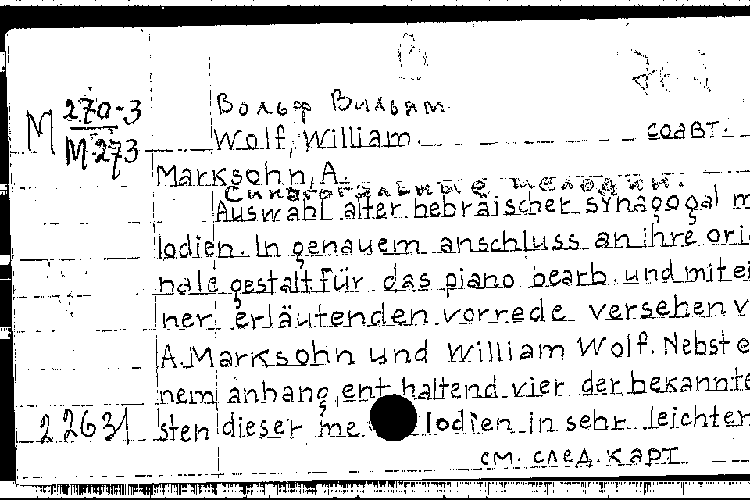 М 270-3
М-273
Вольф Вильям.
Wolf, William. соавт.
Marksohn, A.
Синагогальные мелодии.
Auswahl alter hebräischer synagogal m
lodien. In genauem anschluss an ihre ori
nale gestalt für das piano bearb. und mit ei
ner erläutenden vorrede versehen v
A. Marksohn und William Wolf. Nebst e
nem anhang, enthaltend vier der bekannte
22631 sten dieser me lodien in sehr leichter
см. след. карт